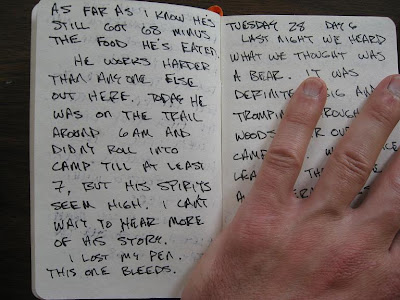 AS FAR AS I KNOW HE'S
STILL GOT 68 MINUS
THE FOOD HE'S EATEN.
HE WORKS HARDER
THAN ANYONE ELSE
OUT HERE. TODAY HE
WAS ON THE TRAIL
AROUND 6AM AND
DIDN'T ROLL INTO
CAMP TILL AT LEAST
7, BUT HIS SPIRITS
SEEM HIGH. I CAN'T
WAIT TO HEAR MORE
OF HIS STORY.
I LOST MY PEN.
THIS ONE BLEEDS.
TUESDAY 28 DAY 6
LAST NIGHT WE HEARD
WHAT WE THOUGHT WAS
A BEAR. IT WAS
DEFINITE AND
TROMPING
WOODS OUR
CAMP
A